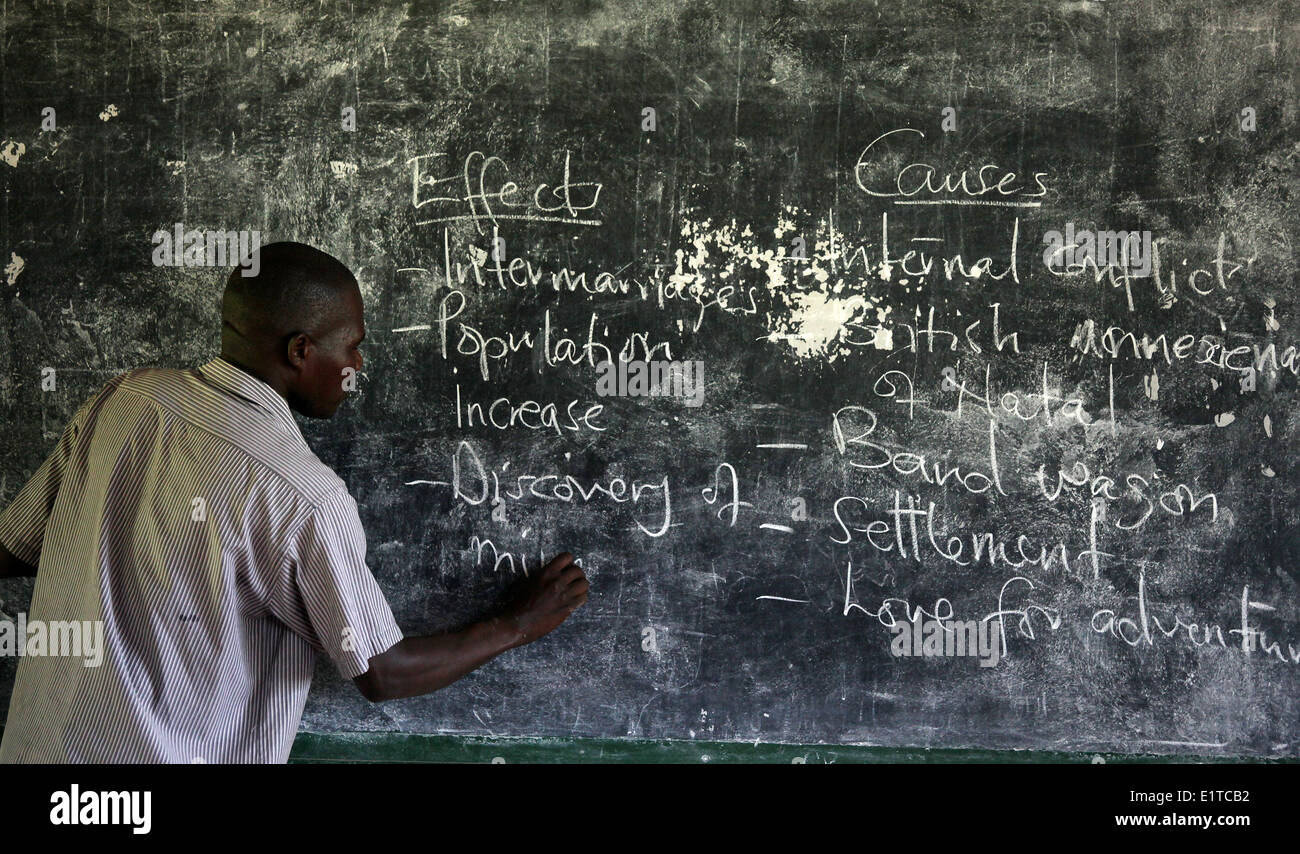 Effects
- Intermarriages
- Population
Increase
- Discovery of
Causes
- Internal conflict
- British
of Natal
- Band wagon
- Settlement
- Love for adventur
alamy stock photo
E1TCB2
www.alamy.com